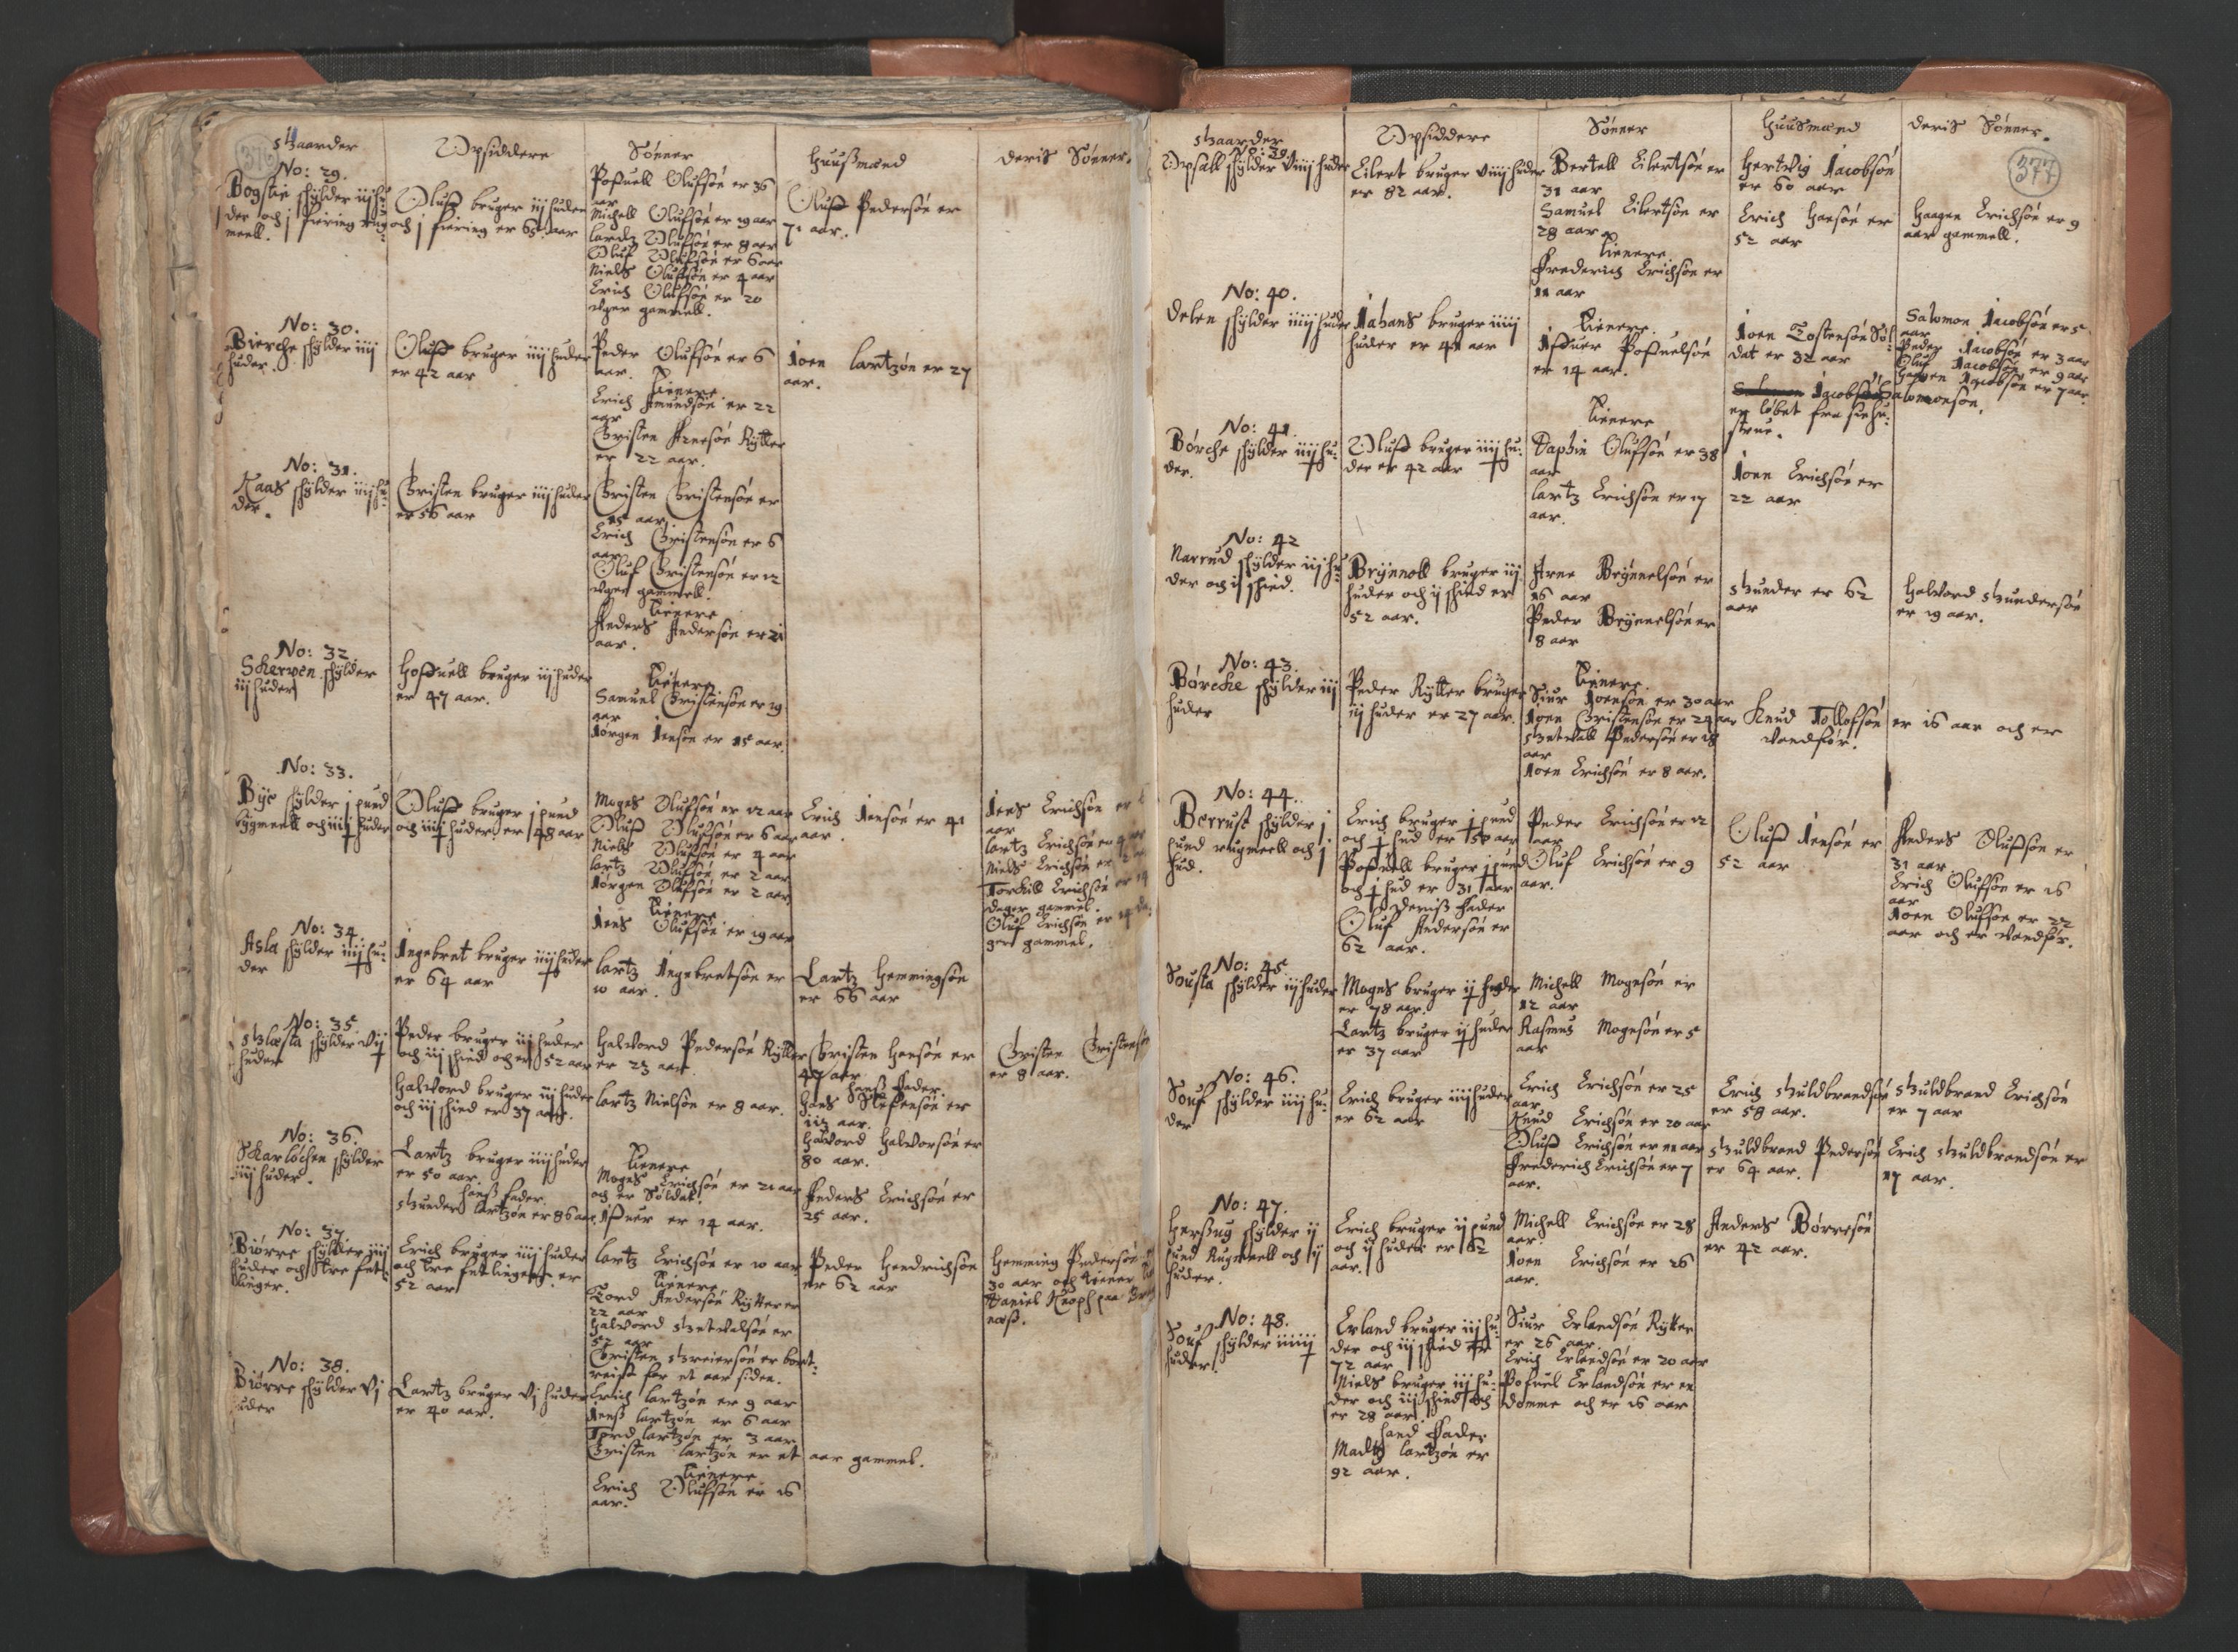 376
Gaarder
Opsiddere
Sønner
Huußmænd
Deris Sønner.
No: 29.
Bogstie schylder iij hu¬
der och j fiering rug¬
meell.
Oluff bruger iij huder
och j fiering er 65 aar
Pofuell Olufsøn er 36
aar
Michell Olufsøn er 19 aar
Lardz Olufsøn er 8 aar
Oluf Olufsøn er 6 aar
Niels Olufsøn er 4 aar
Erich Olufsøn er 20
uger gammell.
Oluff Pedersøn er
71 aar.
No: 30.
Bierche schylder iiij
huder.
Oluff bruger iiij huder
er 42 aar
Peder Olufsøn er 6
aar.
Tienere
Erich Amundsøn er 22
aar
Christen Arnesøn Rytter
er 22 aar.
Joen Lartzøn er 27
aar.
No: 31.
Kaas schylder iiij hu¬
der.
Christen bruger iiij huder
er 56 aar
Christen Christensøn er
15 aar.
Erich Christensøn er 6
aar
Oluf Christensøn er 12
uger gammell.
Tienere
Anders Andersøn er 21
aar.
No: 32.
Scherven schylder
iij huder
Hofuell bruger iij huder
er 47 aar.
Tienere
Samuel Christensøn er 19
aar
Jørgen Jensøn er 15 aar.
No: 33.
Bÿe schylder j pund
bygmeell och iiij huder
Oluff bruger j pund
och iiij huder er 48 aar
Moges Olufsøn er 12 aar
Oluff Olufsøn er 6 aar
Niels Olufsøn er 4 aar
Lartz Olufsøn er 2 aar
Jørgen Olufsøn er 2 aar
Tienere
Jens Olufsøn er 19 aar
Erich Jensøn er 41
aar.
Jens Erichsøn er
aar
Lartz Erichsøn er
Niels Erichsøn er
Torchill Erichsøn er 14
dager gammel.
Oluf Erichsøn er 14 da¬
ger gammel.
No: 34.
Asla schylder iiij hu¬
der
Ingebret bruger iiij huder
er 64 aar
Lartz Ingebretsøn er
10 aar.
Lartz Hemmingsøn
er 66 aar
No: 35.
Glæsta schylder vij
huder
Peder bruger iij huder
och iij schind och er 52 aar
Halvord bruger iij huder
och iij schind er 37 aar.
Halvord Pedersøn Rytter
er 23 aar.
Lartz Nielsøn er 8 aar.
Christen Hansøn er
47 aar
Hanß Fader.
Hans Steffensøn er
113 aar.
Halvord Halvorsøn er
80 aar.
Christen Christensøn
er 8 aar.
No: 36.
Skarløchen schylder
iiij huder.
Lartz bruger iiij huder
er 50 aar.
Hanß Fader.
Gunder Lartzøn er 86 aar.
Tienere
Moges Erichsøn er 21 aar
och er Soldat.
Ifuer er 14 aar.
Anders Erichsøn er
25 aar.
No: 37.
Biørre schylder iiij
huder och tre fet¬
linger.
Erich bruger iiij huder
och tre fetlinger er
52 aar
Lartz Erichsøn er 10 aar
Tienere
Tord Andersøn Rytter er
22 aar
Halvord Gretvelsøn er
52 aar
Christen Greiersøn er bort¬
reist for et aar siden.
Peder Hendrichsøn
er 62 aar
Hemming Pedersøn
30 aar och tiener
Daniel Knoph paa
næß.
No: 38.
Biørre schylder vj
huder
Lartz bruger vj huder
er 40 aar.
Erich Lartzøn er 9 aar
Jenß Lartzøn er 6 aar
Tord Lartzøn er 3 aar
Christen Lartzøn er et aar gammel.
Tienere
Erich Olufsøn er 16
aar.
377
Gaarder
Opsiddere
Sønner
Huusmænd
Deris Sønner.
No: 39.
Opsall schylder viiij huder
Eilert bruger viiij huder
er 82 aar.
Bertell Eilertsøn er
31 aar
Samuel Eilertsøn er
28 aar
Tienere
Frederich Erichsøn er
11 aar
Hertvig Jacobsøn
er 60 aar
Erich Hansøn er
52 aar
Haagen Erichsøn er 9
aar gammell.
No: 40.
Delen schylder iiiij huder
Jahans bruger iiiij
huder er 41 aar
Tienere.
Ifuer Pofuelsøn
er 14 aar.
Joen Tostensøn Sol¬
dat er 32 aar
Jacob Salomonsøn,
er løbet fra sin hu¬
strue.
Salomon Jacobsøn er 5
aar
Peder Jacobsøn er 3 aar
Oluf Jacobsøn er 9 aar
Haagen Jacobsøn er 7 aar.
No: 41.
Børche schylder iiij hu¬
der.
Oluff bruger iiij hu¬
der er 42 aar
Tienere
Daphin Olufsøn er 38
aar
Lartz Erichsøn er 17
aar.
Joen Erichsøn er
22 aar
No: 42
Narrud schylder iij hu¬
der och ij schind.
Brÿnnoll bruger iij
huder och ij schind er
52 aar.
Arne Brÿnnelsøn er
16 aar
Peder Brÿnnelsøn er
8 aar
Gunder er 62
aar
Halvord Gundersøn
er 19 aar.
No: 43.
Børche schylder iij
huder
Peder Rytter bruger
iij huder er 27 aar.
Tienere.
Siur Joensøn er 30 aar
Joen Christensøn er 24 aar
Gretvell Pedersøn er 18
aar
Joen Erichsøn er 8 aar.
Knud Tollofsøn er 16 aar och er
vandfør.
No: 44.
Berrust schylder j
pund rugmeell och j
hud.
Erich bruger j pund
och j hud er 50 aar
Pofuell bruger j pund
och j hud er 31 aar
Derniß Fader
Oluf Andersøn er
62 aar.
Peder Erichsøn er 12
aar
Oluf Erichsøn er 9
aar.
Oluff Jensøn er
52 aar
Anders Olufsøn er
31 aar.
Erich Olufsøn er 16
aar
Joen Olufsøn er 22
aar och er vandfør.
No: 45.
Sousta schylder iij huder
Moges bruger ij huder
er 78 aar.
Lartz bruger ij huder
er 37 aar
Michell Mogesøn er
12 aar
Rasmus Mogesøn er 5
aar
No: 46.
Souf schylder iiij hu¬
der
Erich bruger iiij huder
er 62 aar
Erich Erichsøn er 25
aar
Knud Erichsøn er 20 aar
Oluff Erichsøn er 11 aar
Frederich Erichsøn er 7
aar.
Erich Guldbrandsøn
er 58 aar.
Guldbrand Pedersøn
er 64 aar.
Guldbrand Erichsøn
er 7 aar
Erich Guldbrandsøn er
17 aar.
No: 47.
Herßug schylder ij
pund Rugmeell och ij
huder.
Erich bruger ij pund
och ij huder er 62
aar.
Michell Erichsøn er 28
aar.
Joen Erichsøn er 26
aar.
Anders Børresøn
er 42 aar.
No: 48.
Souf schylder iiiiij
huder.
Erland bruger iij hu¬
der och iij schind er
72 aar
Niels bruger iij hu¬
der och iij schind och
er 28 aar.
Hand Fader
Madtz Lartzøn er
92 aar.
Siur Erlandsøn Rytter
er 26 aar.
Erich Erlandsøn er 20 aar
Pofuel Erlandsøn er en
Domme och er 16 aar